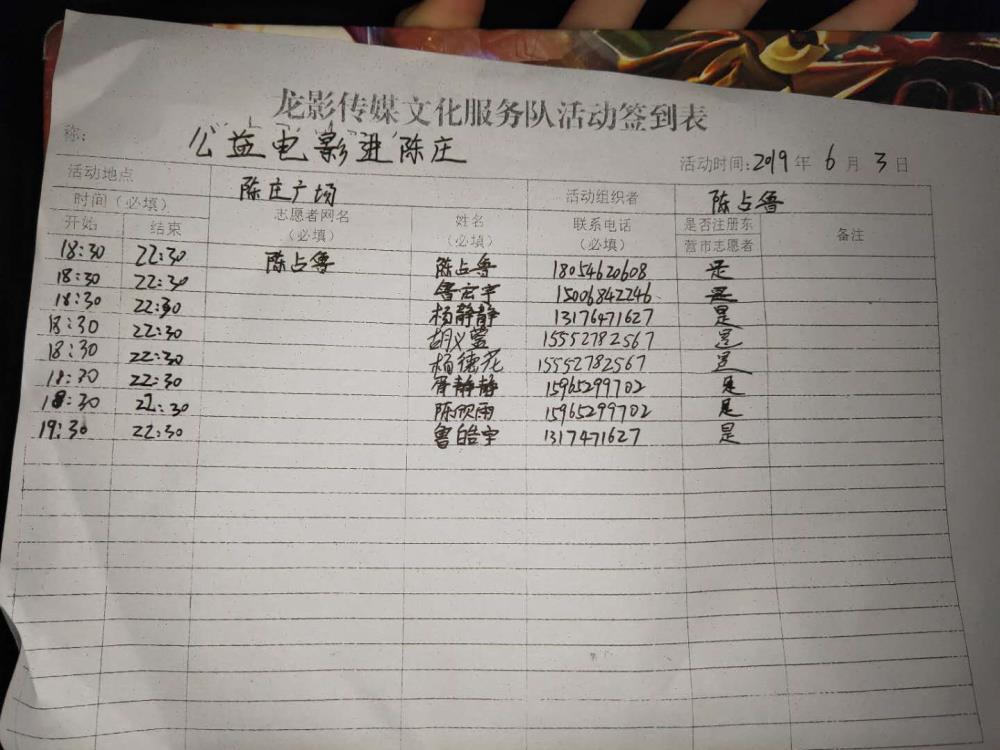 龙影传媒文化服务队活动签到表
称: 公益电影进陈庄 活动时间:2019 年 6 月 3 日
活动地点 陈庄广场 活动组织者 陈占鲁
时间（必填） 志愿者网名（必填） 姓名（必填） 联系电话（必填） 是否注册东营市志愿者 备注
开始 结束
18:30 22:30 陈占鲁 陈占鲁 18054620608 是
18:30 22:30 鲁宏宇 15006842246 是
18:30 22:30 杨静静 13176471627 是
18:30 22:30 胡义萱 15552782567 是
18:30 22:30 杨德花 15552782567 是
18:30 22:30 胥静静 15965299702 是
18:30 22:30 陈欣雨 15965299702 是
19:30 22:30 鲁皓宇 1317471627 是